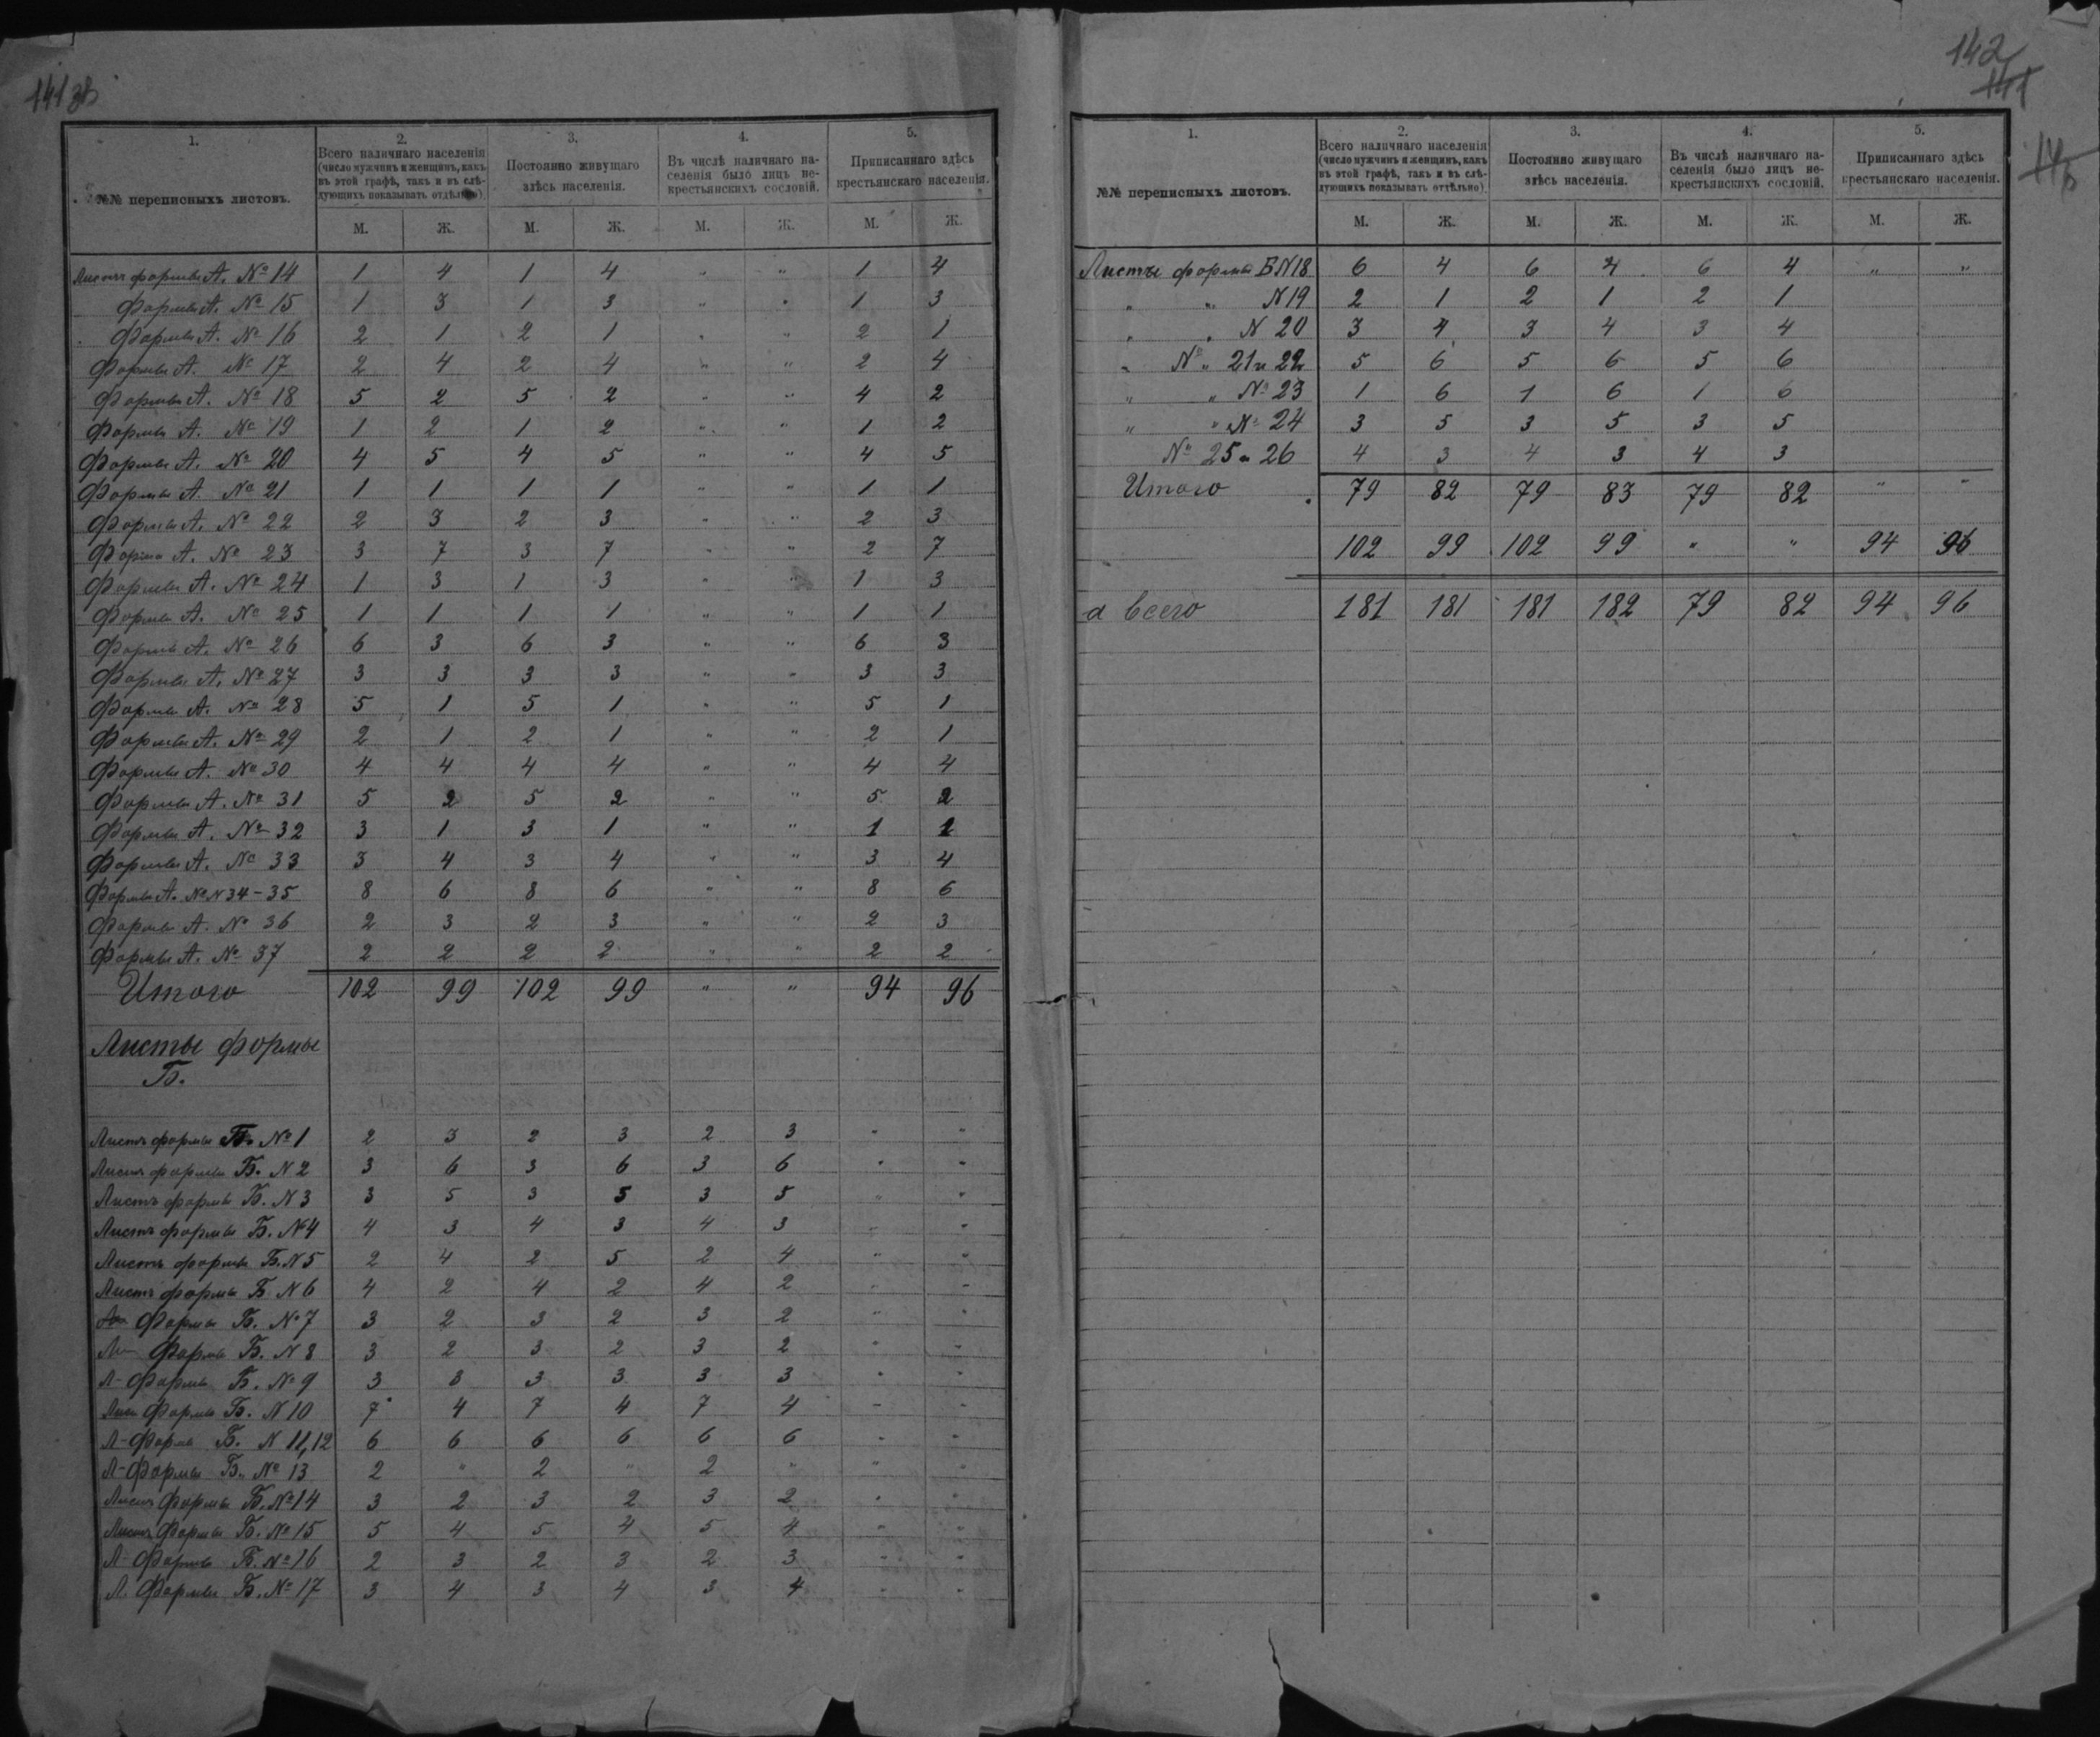 141 об
1. 2. 3. 4. 5.
№№ переписныхъ листовъ.
Всего наличнаго населенія
(число мужчинъ и женщинъ, какъ
въ этой графѣ, такъ и въ слѣ-
дующихъ показывать отдѣльно)
Постоянно живущаго
здѣсь населенія.
Въ числѣ наличнаго на-
селенія было лицъ не-
крестьянскихъ сословій.
Приписаннаго здѣсь
крестьянскаго населенія.
М. Ж. М. Ж. М. Ж. М. Ж.
Листъ формы А. № 14 1 4 1 4 " " 1 4
формы А. № 15 1 3 1 3 " " 1 3
Формы А. № 16 2 1 2 1 " " 2 1
Формы А. № 17 2 4 2 4 " " 2 4
Формы А. № 18 5 2 5 2 " " 4 2
Формы А. № 19 1 2 1 2 " " 1 2
Формы А. № 20 4 5 4 5 " " 4 5
Формы А. № 21 1 1 1 1 " " 1 1
Формы А. № 22 2 3 2 3 " " 2 3
Форма А. № 23 3 7 3 7 " " 2 7
Формы А. № 24 1 3 1 3 " " 1 3
Формы А. № 25 1 1 1 1 " " 1 1
Формы А. № 26 6 3 6 3 " " 6 3
Формы А. № 27 3 3 3 3 " " 3 3
Формы А. № 28 5 1 5 1 " " 5 1
Формы А. № 29 2 1 2 1 " " 2 1
Формы А. № 30 4 4 4 4 " " 4 4
Формы А. № 31 5 2 5 2 " " 5 2
Формы А. № 32 3 1 3 1 " " 1 1
Формы А. № 33 3 4 3 4 " " 3 4
Формы А. №N 34-35 8 6 8 6 " " 8 6
Формы А. № 36 2 3 2 3 " " 2 3
Формы А. № 37 2 2 2 2 " " 2 2
Итого 102 99 102 99 " " 94 96
Листы формы
Б.
Листъ формы Б. № 1 2 3 2 3 2 3 " "
Листъ формы Б. N 2 3 6 3 6 3 6 " "
Листъ формы Б. N 3 3 5 3 5 3 5 " "
Листъ формы Б. №4 4 3 4 3 4 3 " "
Листъ формы Б. N 5 2 4 2 5 2 4 " "
Листъ формы Б. N 6 4 2 4 2 4 2 " "
Формы Б. № 7 3 2 3 2 3 2 " "
Л- Формы Б. N 8 3 2 3 2 3 2 " "
Л- Формы Б. № 9 3 3 3 3 3 3 " "
Лист Формы Б. N 10 7 4 7 4 7 4 - -
Л- Формы Б. N 11,12 6 6 6 6 6 6 - -
Л- Формы Б. № 13 2 " 2 " 2 " " "
Листъ Формы Б. № 14 3 2 3 2 3 2 " "
Листъ Формы Б. № 15 5 4 5 4 5 4 " "
Л- Формы Б. № 16 2 3 2 3 2 3 " "
Л. Формы Б. № 17 3 4 3 4 3 4 " "
142
141
1. 2. 3. 4. 5.
№№ переписныхъ листовъ.
Всего наличнаго населенія
(число мужчинъ и женщинъ, какъ
въ этой графѣ, такъ и въ слѣ-
дующихъ показывать отдѣльно).
Постоянно живущаго
здѣсь населенія.
Въ числѣ наличнаго на-
селенія было лицъ не-
крестьянскихъ сословій.
Приписаннаго здѣсь
крестьянскаго населенія.
М. Ж. М. Ж. М. Ж. М. Ж.
Листы формы Б N 18 6 4 6 4 6 4 " "
" " N 19 2 1 2 1 2 1
" " N 20 3 4 3 4 3 4
" № " 21 и 22 5 6 5 6 5 6
" " № 23 1 6 1 6 1 6
" " № 24 3 5 3 5 3 5
№ 25 и 26 4 3 4 3 4 3
Итого 79 82 79 83 79 82 " "
102 99 102 99 " " 94 96
а всего 181 181 181 182 79 82 94 96